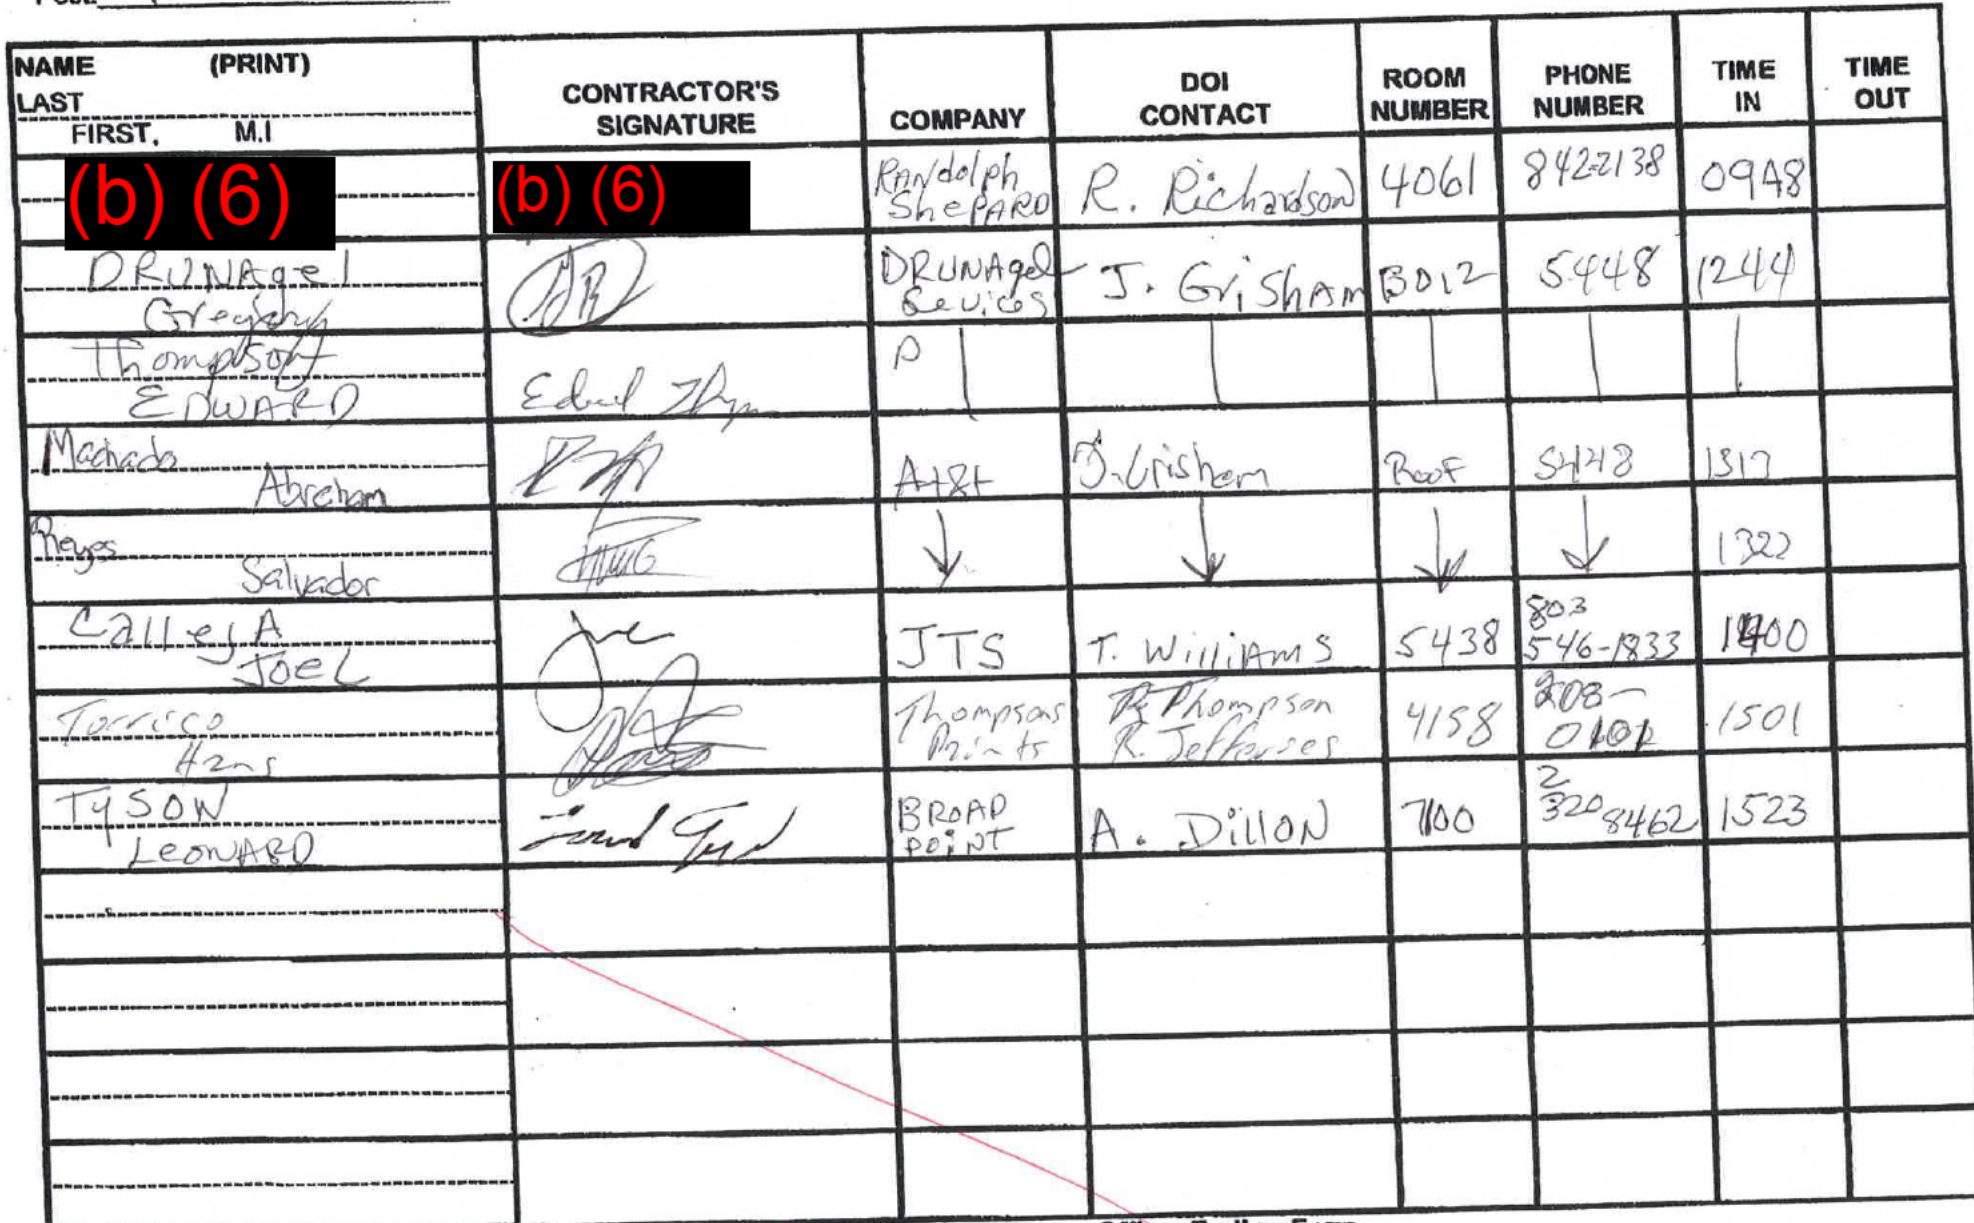 NAME (PRINT)
LAST
FIRST, M.I
CONTRACTOR'S
SIGNATURE
COMPANY
DOI
CONTACT
ROOM
NUMBER
PHONE
NUMBER
TIME
IN
TIME
OUT
(b) (6)
(b) (6)
RANdolph
ShePARD
R. Richardson
4061
842-2138
0948
DRUNAgel
Gregory
DRUNAgel
Sevices
J. GriShAm
B012
5448
1244
Thompson
EDWARD
Machado
Abraham
At&t
J. Grisham
Roof
5448
1317
Reyes
Salvador
1322
CallejA
JOEL
JTS
T. WilliAmS
5438
803
546-1833
1400
Torrico
Hans
Thompsons
Prints
Thompson
R.
4158
208-
1501
TYSON
LeonARD
BROAD
POINT
A. DillON
7100
2
320 8462
1523